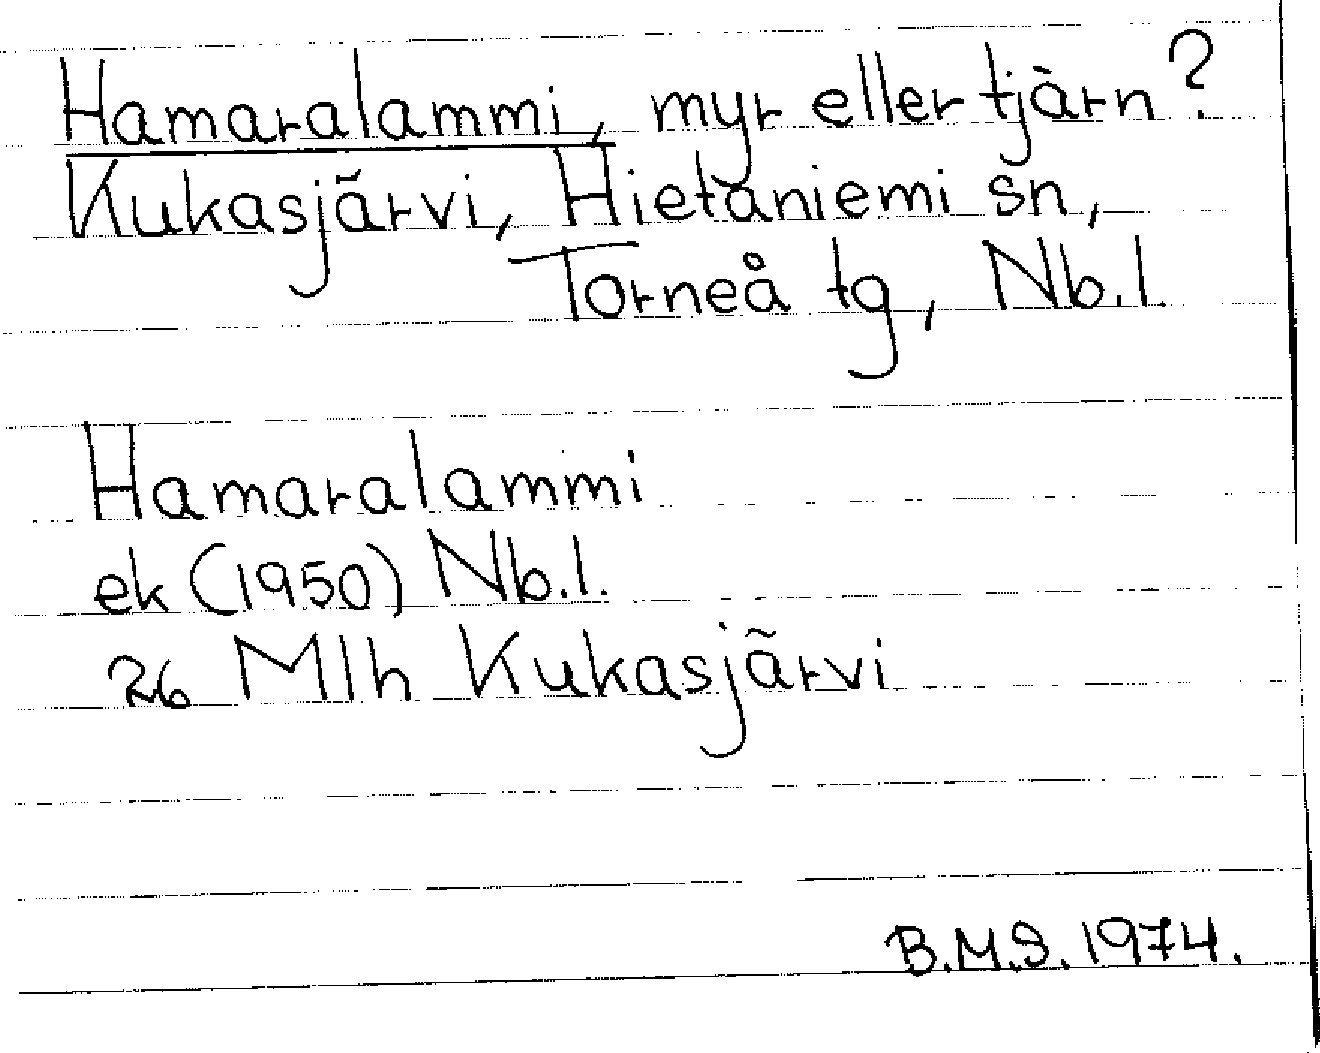 Hamaralammi, myr eller tjärn?
Kukasjärvi, Hietaniemi sn,
Torneå tg, Nb.l.
Hamaralammi
ek (1950) Nb.l.
26 Mlh Kukasjärvi
B.M.S. 1974.